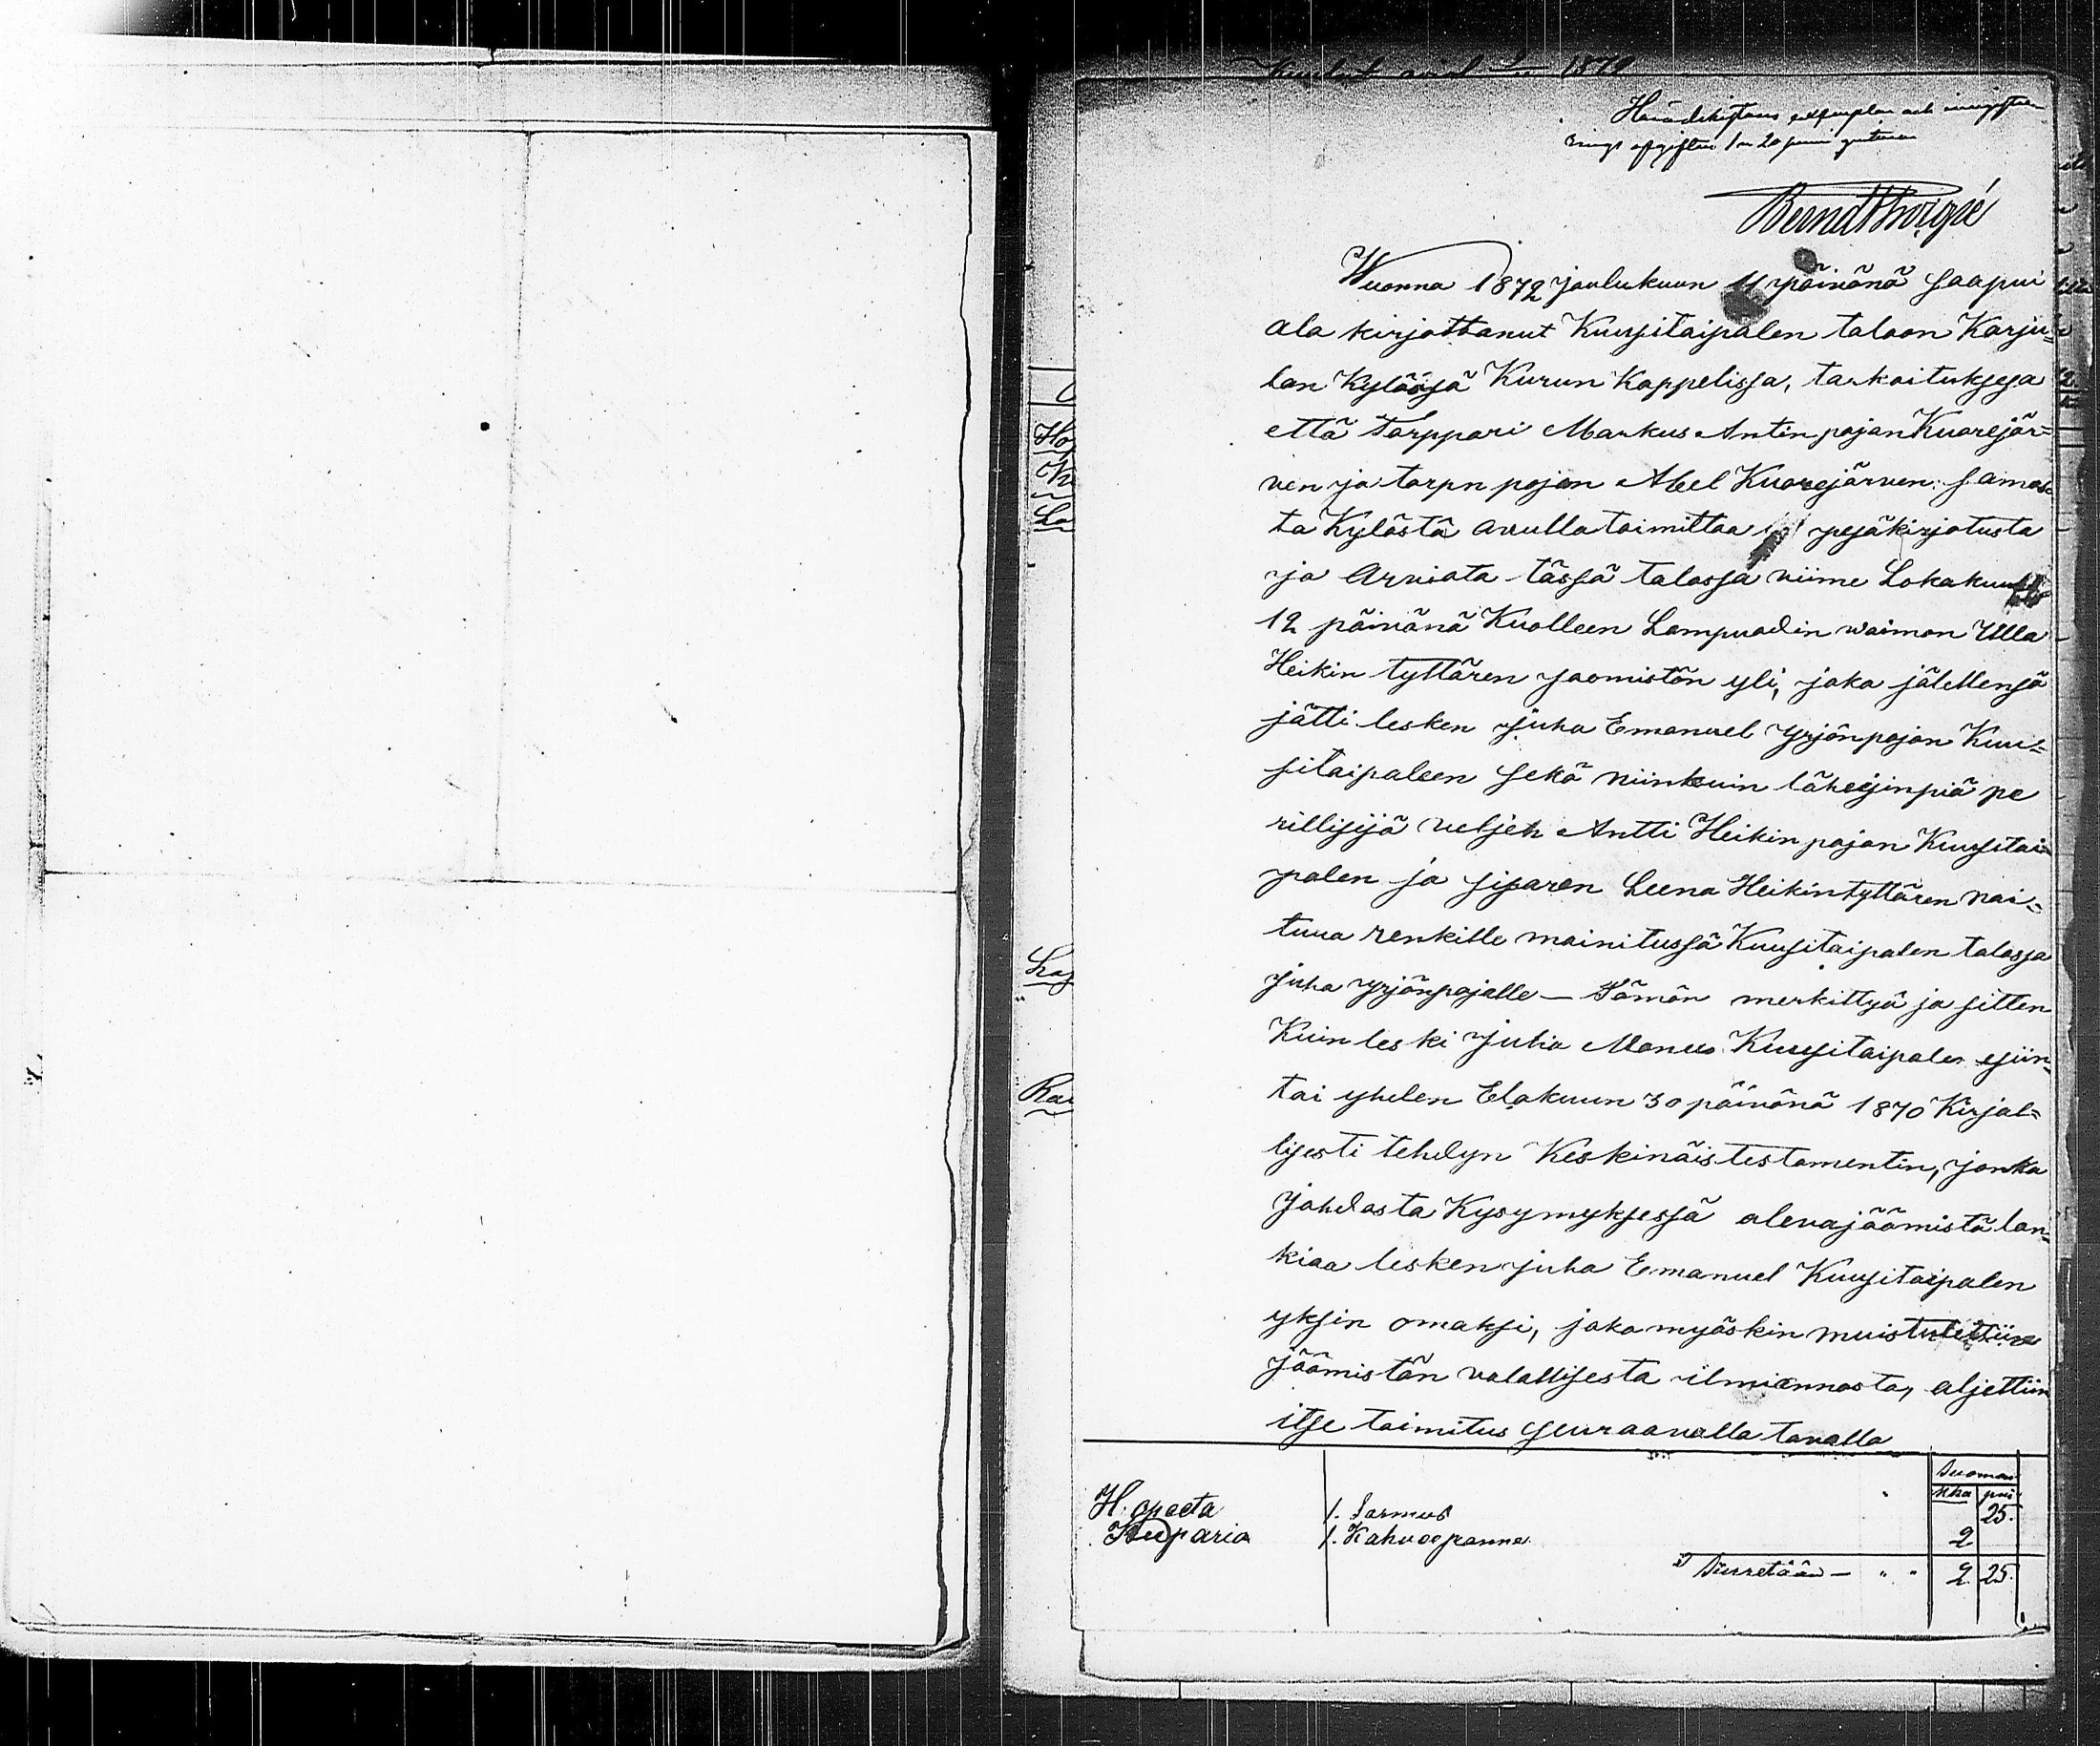 1872
Häradsrättens exemplar och
rings afgiften 1 m 20 penni
Wuonna 1872 joulukuun 11 päivänä saapui
ala kirjottanut Kuusitaipalen taloon Karju-
lan Kylässä Kurun Kappelissa, tarkoituksesa
että Torppari Markus Antin pojan Kuorejär-
ven ja torpn pojan Abel Kuorejärven samas-
ta Kylästä avulla toimittaa pesäkirjotusta
ja Arviota tässä talossa viime Lokakuun
12 päivänä Kuolleen Lampuodin waimon Ulla
Heikin tyttären jäomistön yli, joka jälellensä
jätti lesken Juha Emanuel Yrjönpojan Kuu-
sitaipaleen sekä niinkuin läheisinpiä pe
rillisijä veljen Antti Heikin pojan Kuusitai
palen ja sisaren Leena Heikintyttären nai-
tuua renkille mainitussa Kuusitaipalen talossa
Juha Yrjönpojalle — Tämän merkittyä ja sitten
Kuin leski Juha Manus Kuusitaipalen esiin-
toi yhden Elokuun 30 päivänä 1870 Kirjal-
lisesti tehdyn Keskinäistestamentin, jonka
johdosta Kysymyksessä olevajäämistö lan-
kiaa lesken Juha Emanuel Kuusitaipalen
yksin omaksi, joka myöskin muistutettiin
jäämistön valallisesta ilmiannosta, aljettiin
itse toimitus seuraavalla tavalla
Suoman
Mka pni
H. opeeta 1. Sormus 25.
Kuparia 1. Kahveepannu 2
Siirretään — " " 2 25.